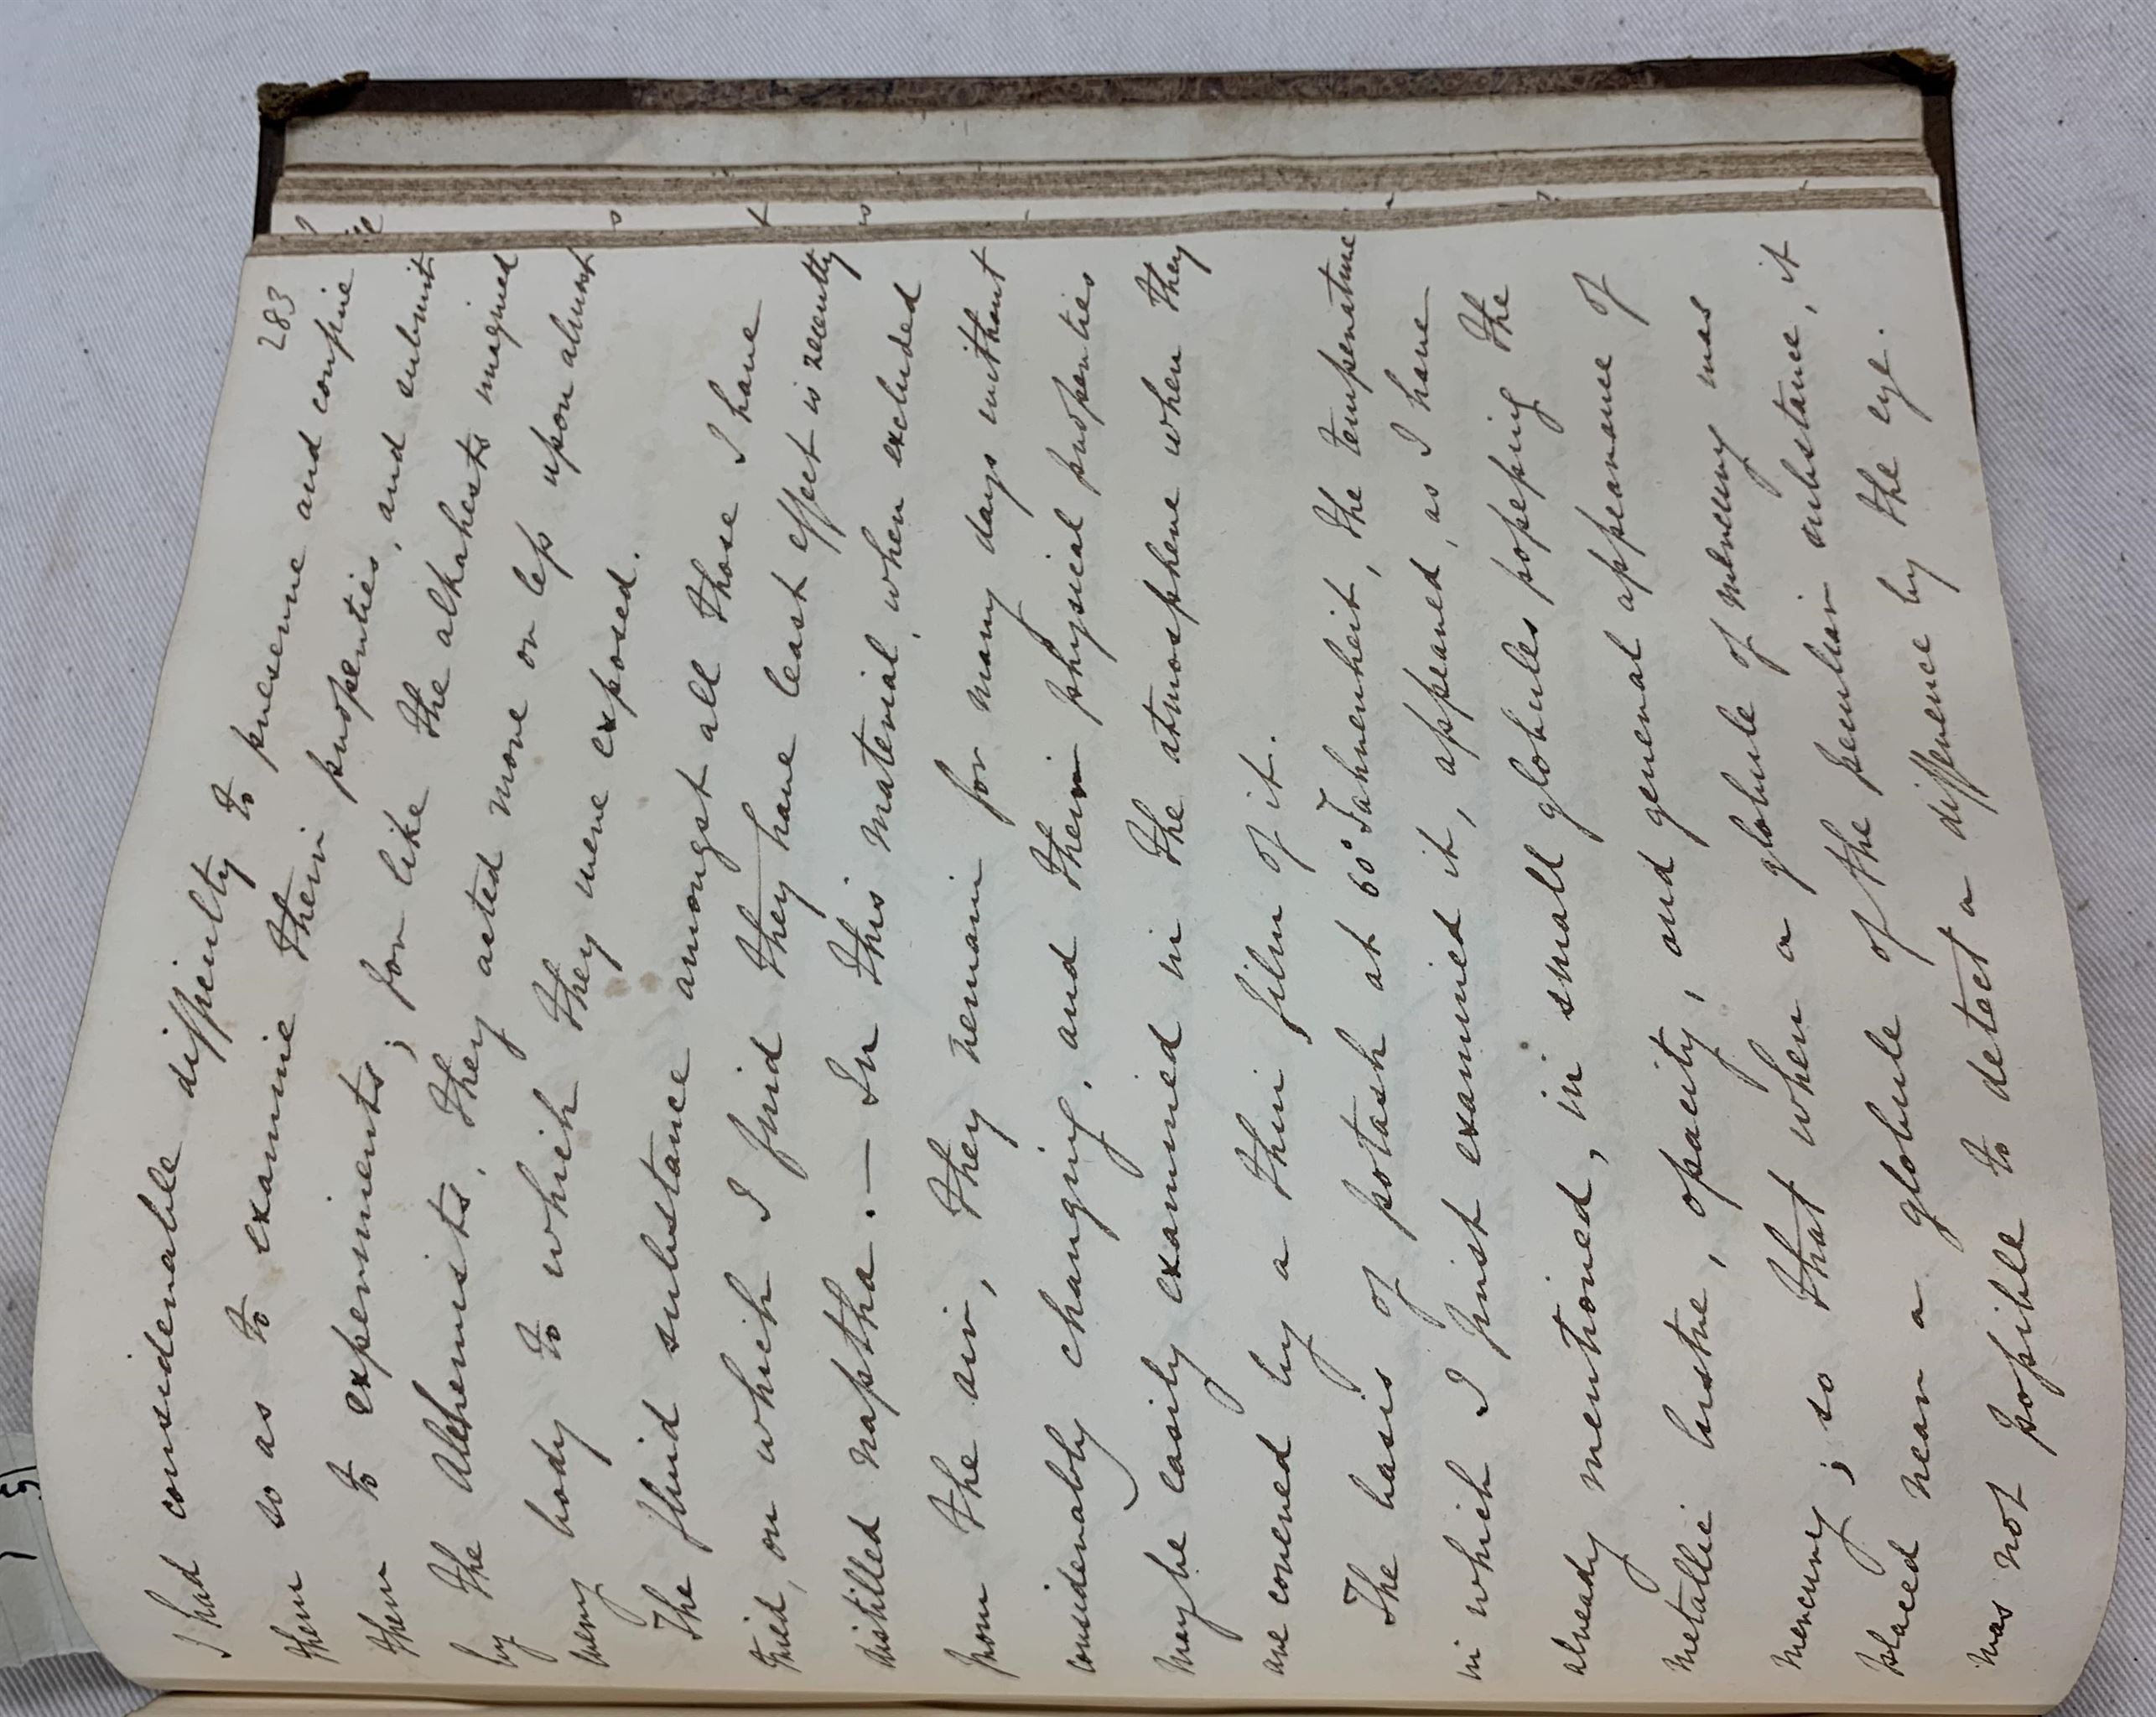 283
I had considerable difficulty to preserve and confine
them so as to examine their properties, and submit
them to experiments; for like the alkahests imagined
by the Alchemists, they acted more or less upon almost
every body to which they were exposed.
The fluid substance amongst all those I have
tried, on which I find they have least effect is recently
distilled naptha. — In this material, when excluded
from the air, they remain for many days without
considerably changing, and their physical properties
may be easily examined in the atmosphere when they
are covered by a thin film of it.
The basis of potash at 60° Fahrenheit, the temperature
in which I first examined it, appeared, as I have
already mentioned, in small globules possessing the
metallic lustre, opacity, and general appearance of
mercury; so that when a globule of mercury was
placed near a globule of the peculiar substance, it
was not possible to detect a difference by the eye.